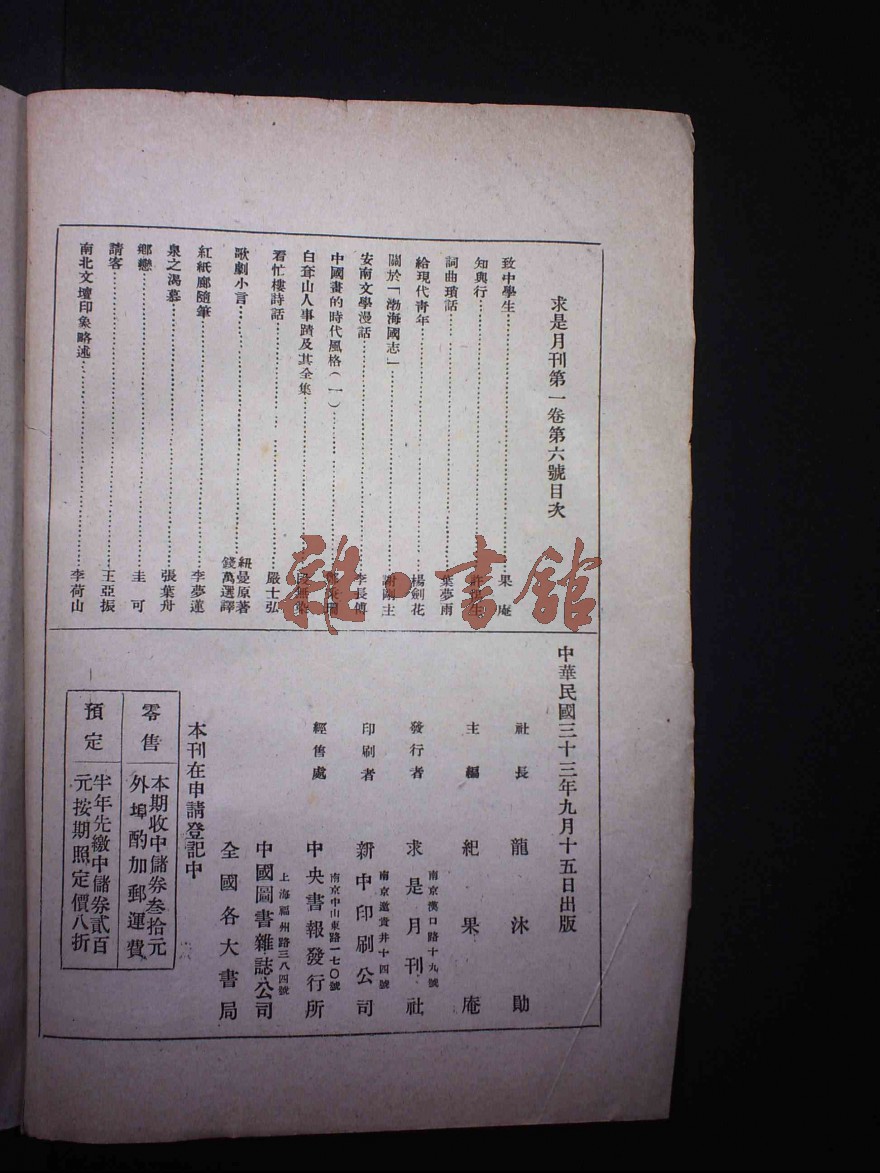 求是月刊第一卷第六號目次
致中學生……果庵
知與行……許
詞曲瑣話……葉夢雨
給現代青年……楊劍花
關於「渤海國志」……謝剛主
安南文學漫話……李長傅
中國畫的時代風格(一)……
白㚖山人事蹟及其全集……段無染
看忙樓詩話……嚴士弘
歌劇小言……紐曼原著
錢萬選譯
紅紙廊隨筆……李夢蓮
泉之渴慕……張葉舟
鄉戀……圭可
請客……王亞振
南北文壇印象略述……李荷山
中華民國三十三年九月十五日出版
社長 龍沐勛
主編 紀果庵
發行者 求是月刊社
南京漢口路十九號
印刷者 新中印刷公司
南京邀貴井十四號
經售處 中央書報發行所
南京中山東路一七〇號
中國圖書雜誌公司
上海福州路三八四號
全國各大書局
本刊在申請登記中
零售 本期收中儲券叁拾元
外埠酌加郵運費
預定 半年先繳中儲券貳百
元按期照定價八折
雜·書館